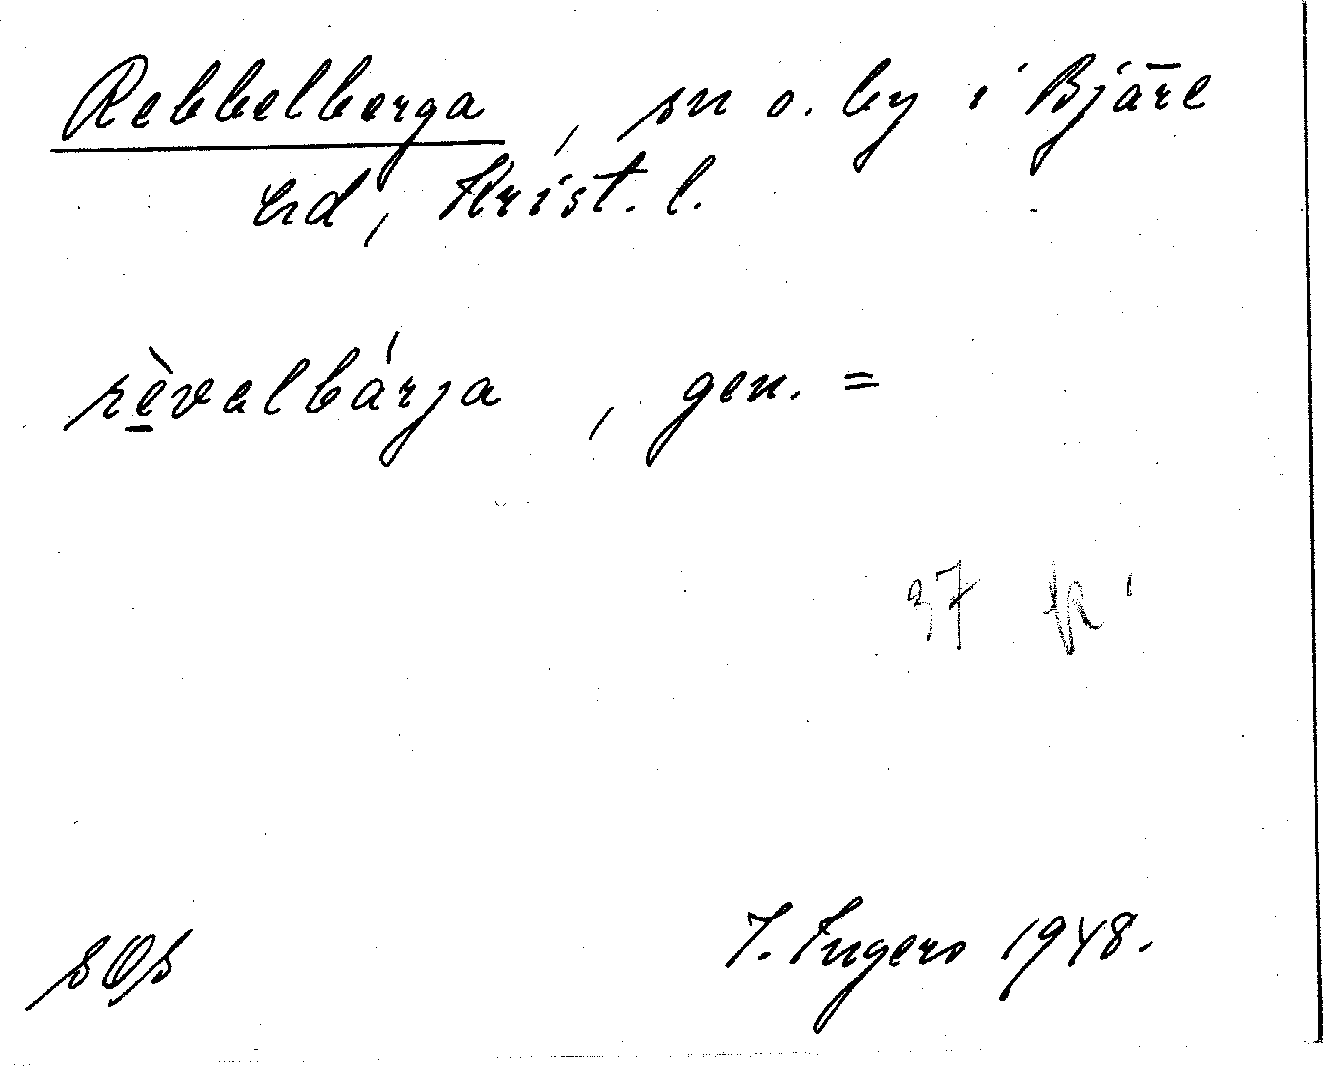 Rebbelberga, sn o. by i Bjäre
hd, Krist. l.
rèvalbárja, gen. =
37
sOs
I. Ingers 1948.